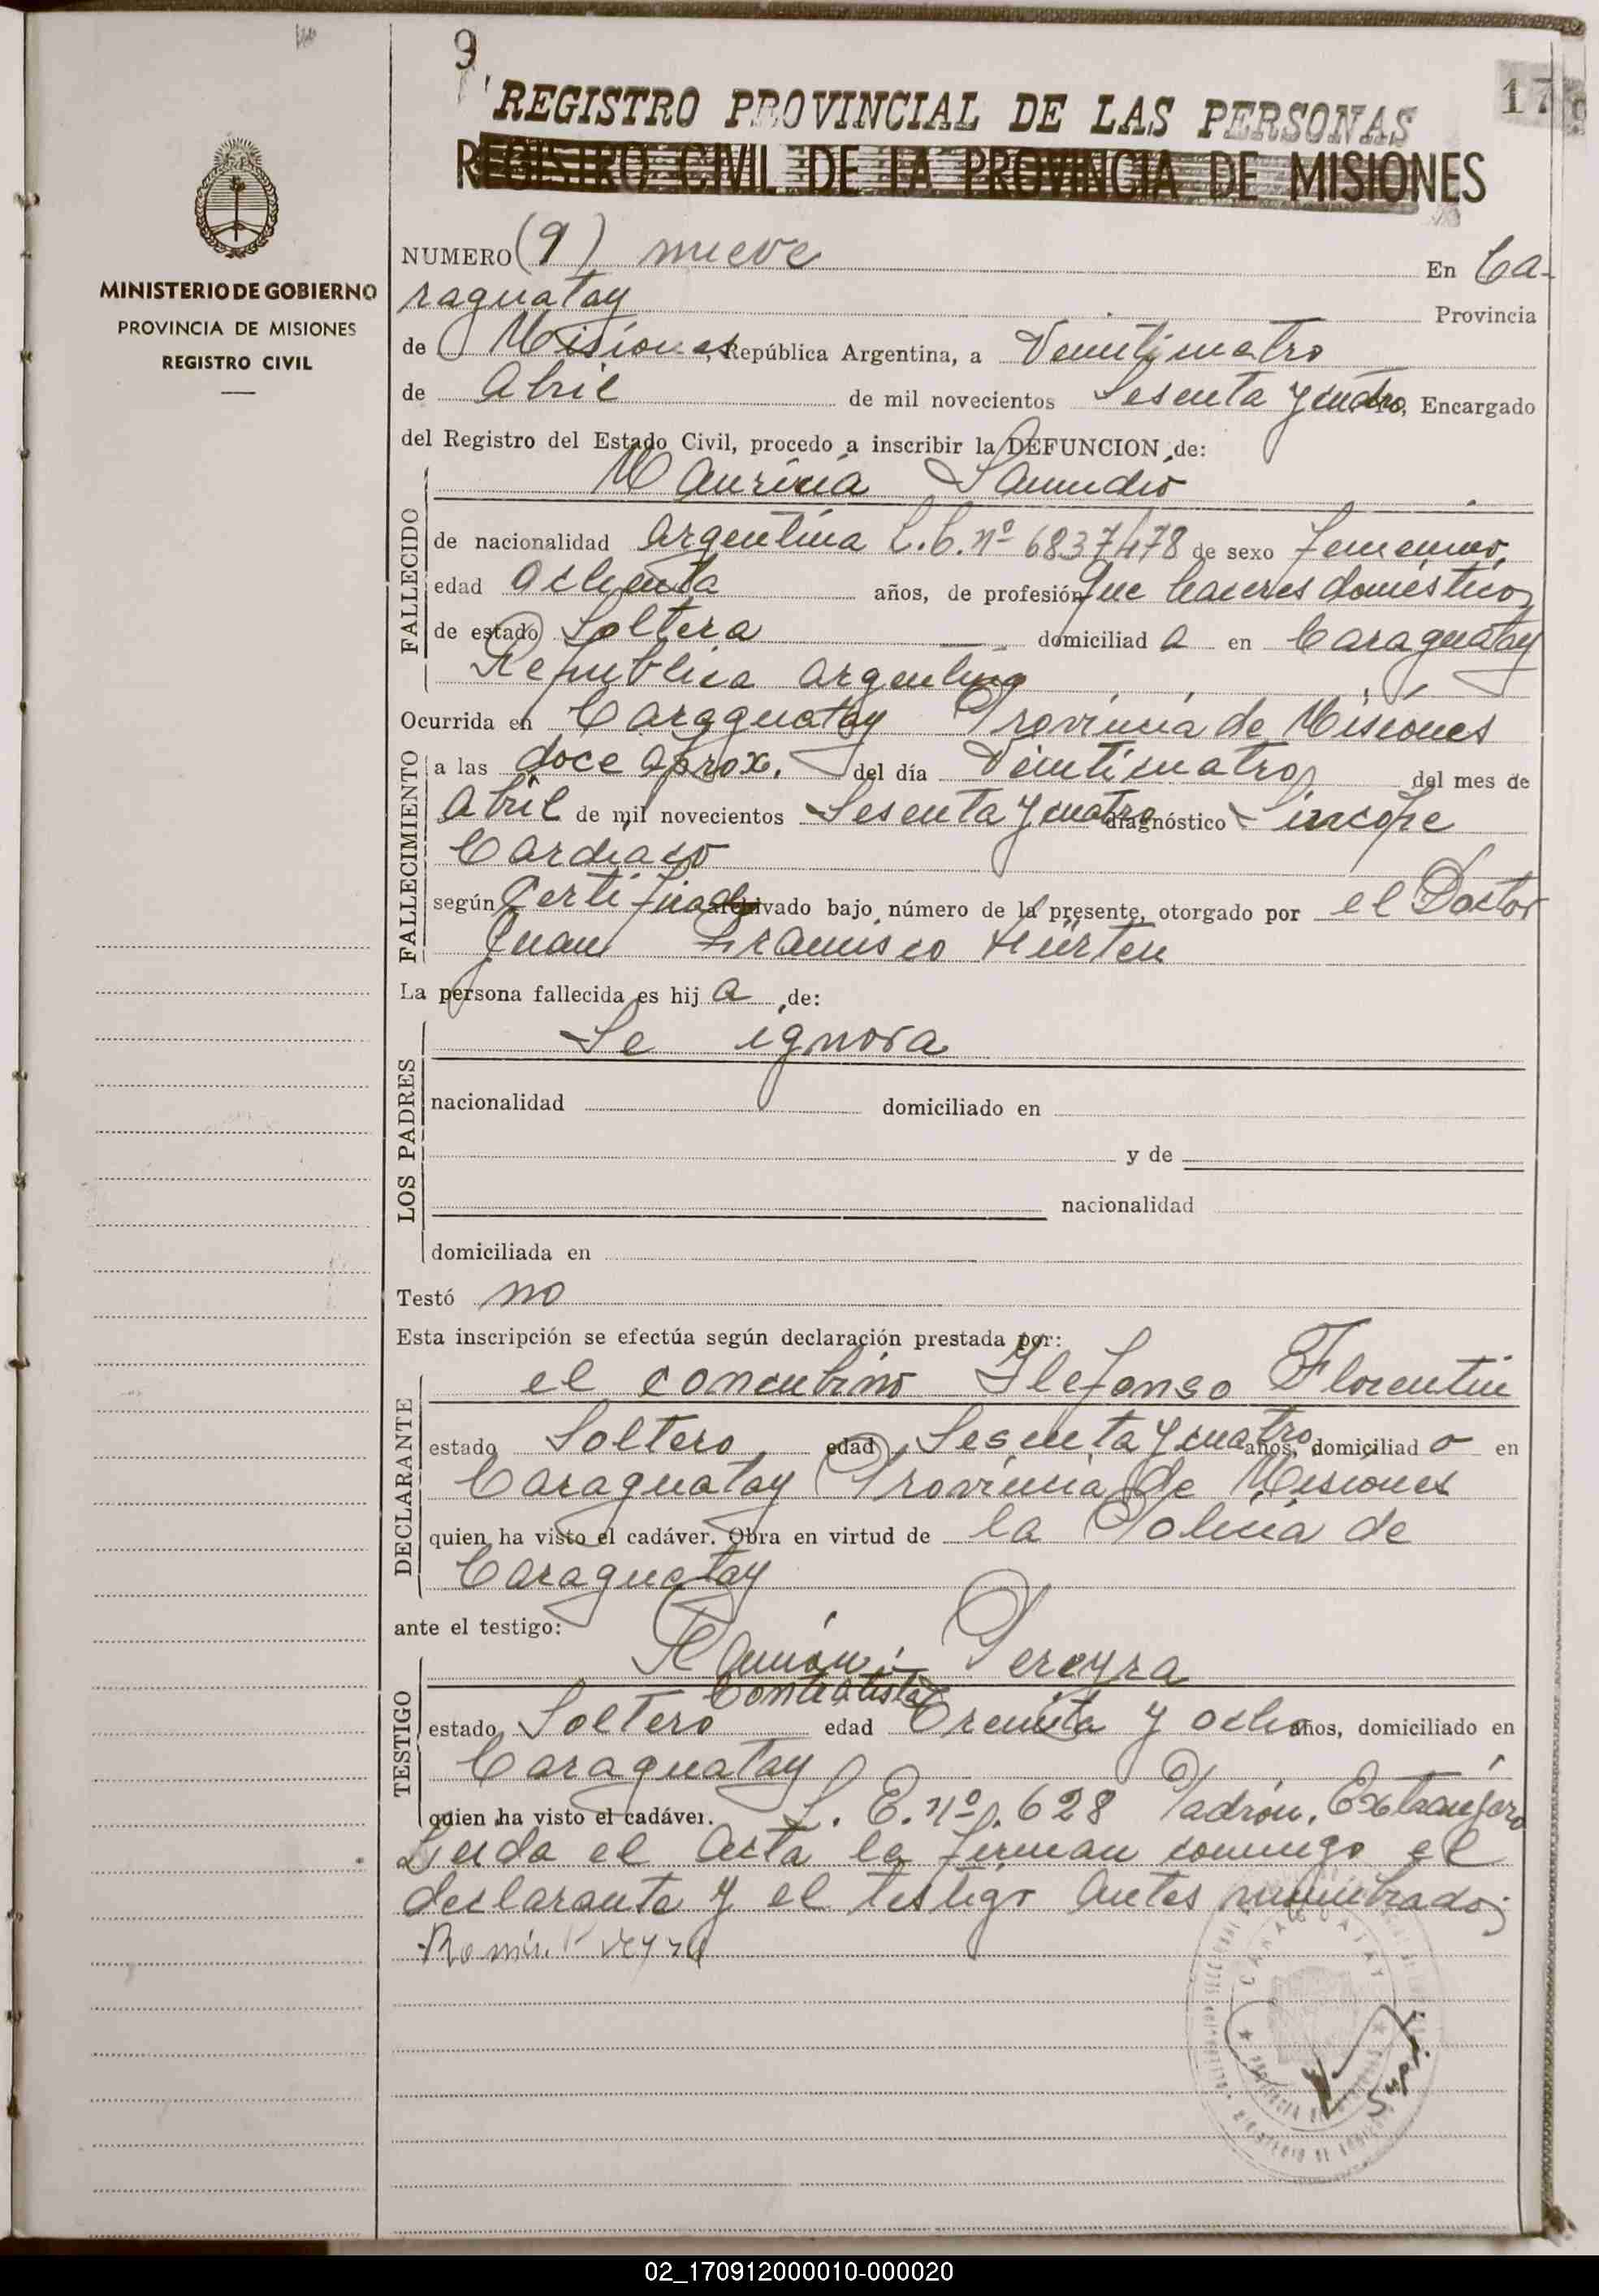 9
17
REGISTRO PROVINCIAL DE LAS PERSONAS
REGISTRO CIVIL DE LA PROVINCIA DE MISIONES
MINISTERIO DE GOBIERNO
PROVINCIA DE MISIONES
REGISTRO CIVIL
NUMERO (9) nueve En Ca-
raguatay Provincia
de Misiones, República Argentina, a Veinticuatro
de Abril de mil novecientos Sesenta y cuatro, Encargado
del Registro del Estado Civil, procedo a inscribir la DEFUNCION de:
Mauricia Samudio
FALLECIDO
de nacionalidad Argentina L.C. nº 6837478 de sexo femenino,
edad Ochenta años, de profesión que haceres domésticos
de estado Soltera domiciliad a en Caraguatay
Republica Argentina
Ocurrida en Caraguatay Provincia de Misiones
FALLECIMIENTO
a las doce aprox. del día Veinticuatro del mes de
Abril de mil novecientos Sesenta y cuatro diagnóstico Sincope
Cardiaco
según Certificado archivado bajo número de la presente, otorgado por el Doctor
Juan Francisco Hürten
La persona fallecida es hij a de:
LOS PADRES
Se ignora
nacionalidad domiciliado en
y de
nacionalidad
domiciliada en
Testó no
Esta inscripción se efectúa según declaración prestada por:
DECLARANTE
el concubino Ilefonso Florentin
estado Soltero edad Sesenta y cuatro años, domiciliad o en
Caraguatay Provincia de Misiones
quien ha visto el cadáver. Obra en virtud de la Policia de
Caraguatay
ante el testigo:
TESTIGO
Ramón Pereyra
Contratista
estado Soltero edad Treinta y ocho años, domiciliado en
Caraguatay
quien ha visto el cadáver. L. E. nº 628 Padrón. Extranjero
Leida el Acta la firman conmigo el
declarante y el testigo antes nombrados
CARAGUATAY
Supl.
02_170912000010-000020